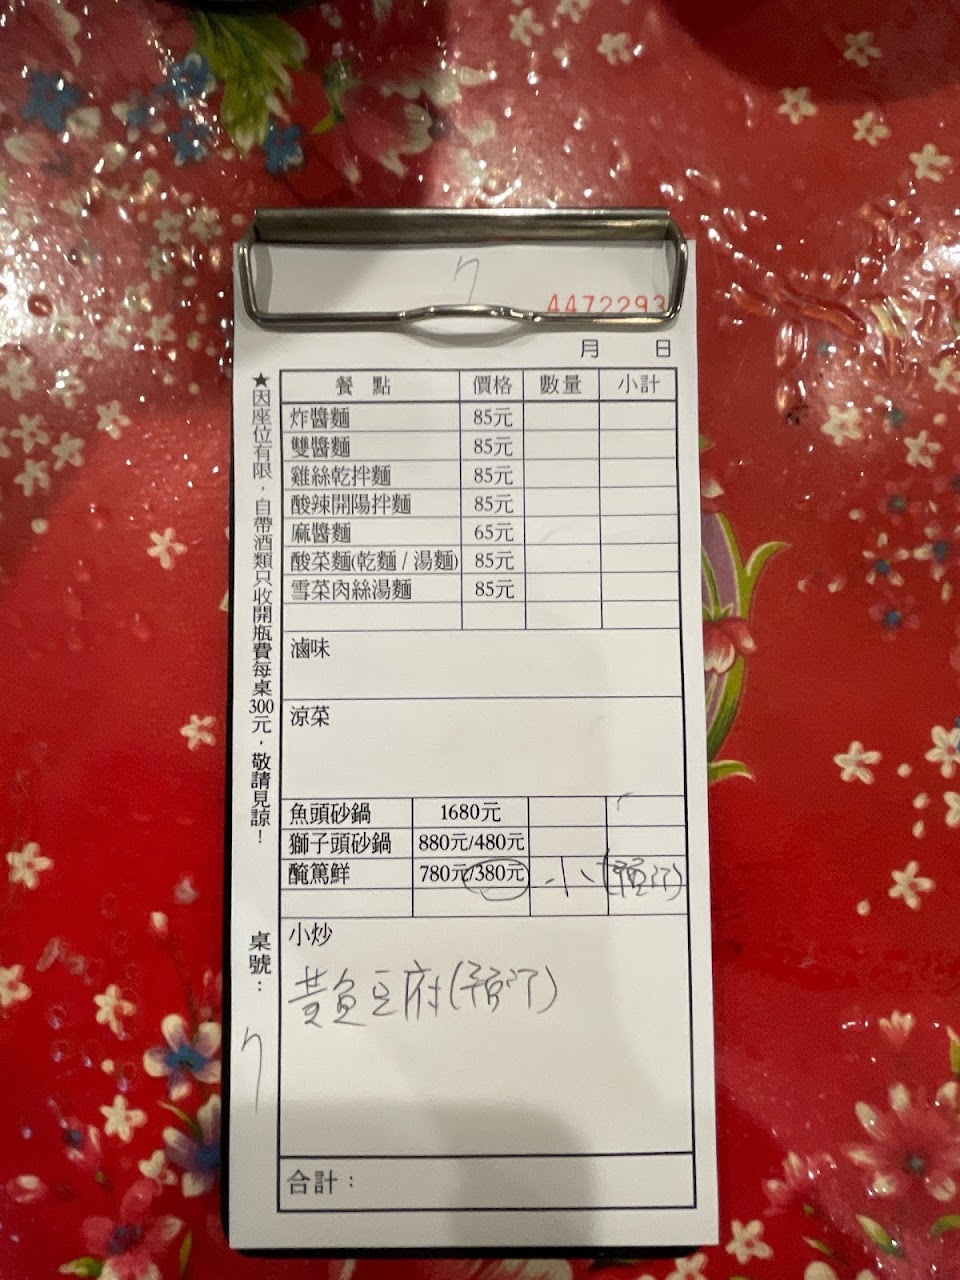 7
4472293
月 日
餐點 價格 數量 小計
炸醬麵 85元
雙醬麵 85元
雞絲乾拌麵 85元
酸辣開陽拌麵 85元
麻醬麵 65元
酸菜麵(乾麵/湯麵) 85元
雪菜肉絲湯麵 85元
滷味
涼菜
魚頭砂鍋 1680元
獅子頭砂鍋 880元/480元
醃篤鮮 780元/380元 小 (預訂)
小炒
黃魚豆腐(預訂)
合計：
★因座位有限，自帶酒類只收開瓶費每桌300元，敬請見諒！
桌號： 7